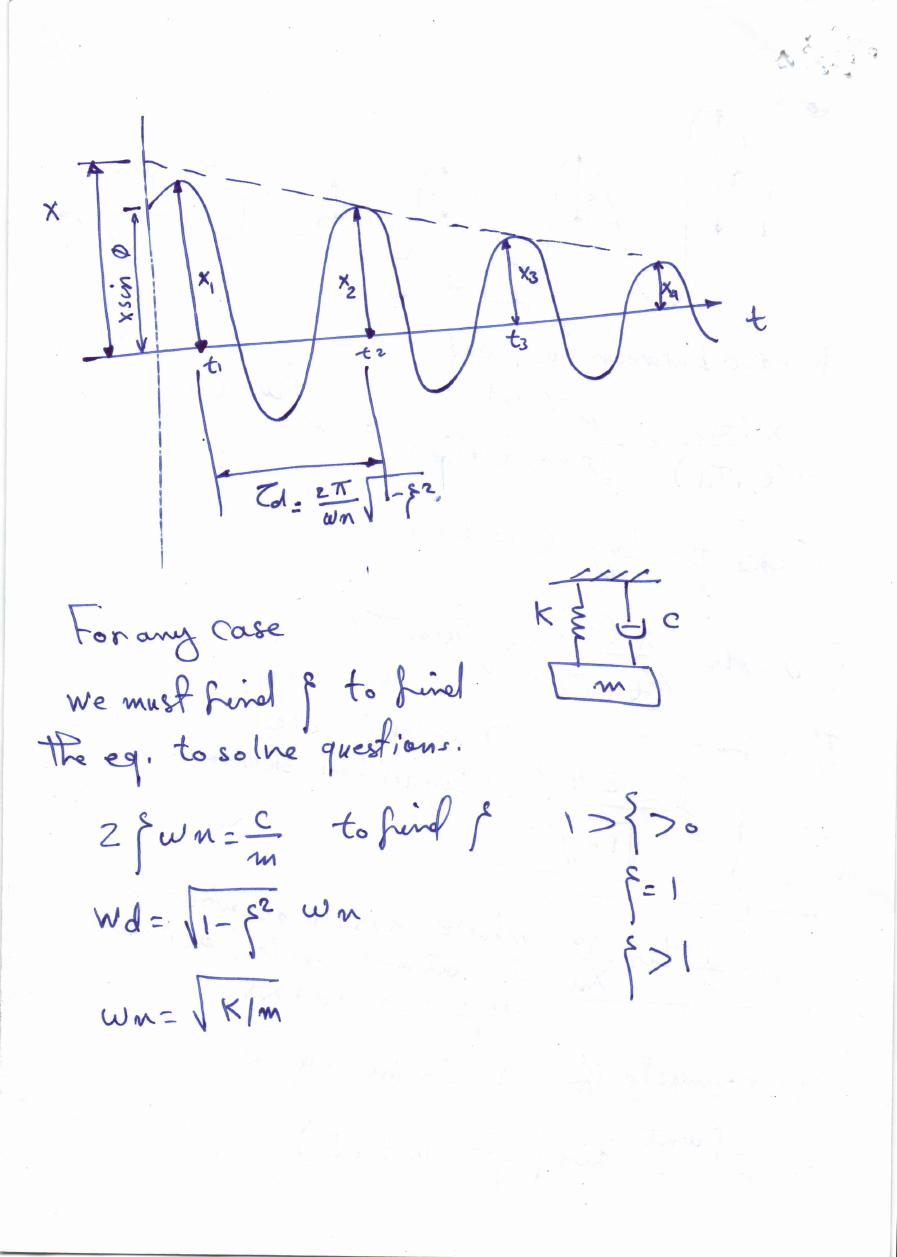 X
x sin Ø
x₁
x₂
x₃
x₄
t
t₁
t₂
t₃
τd = 2π/ωn √1-ξ²
K
C
m
For any case
we must find ξ to find
the eq. to solve questions.
2ξωn = c/m to find ξ
1 > ξ > 0
ξ = 1
ωd = √1-ξ² ωn
ξ > 1
ωn = √K/m